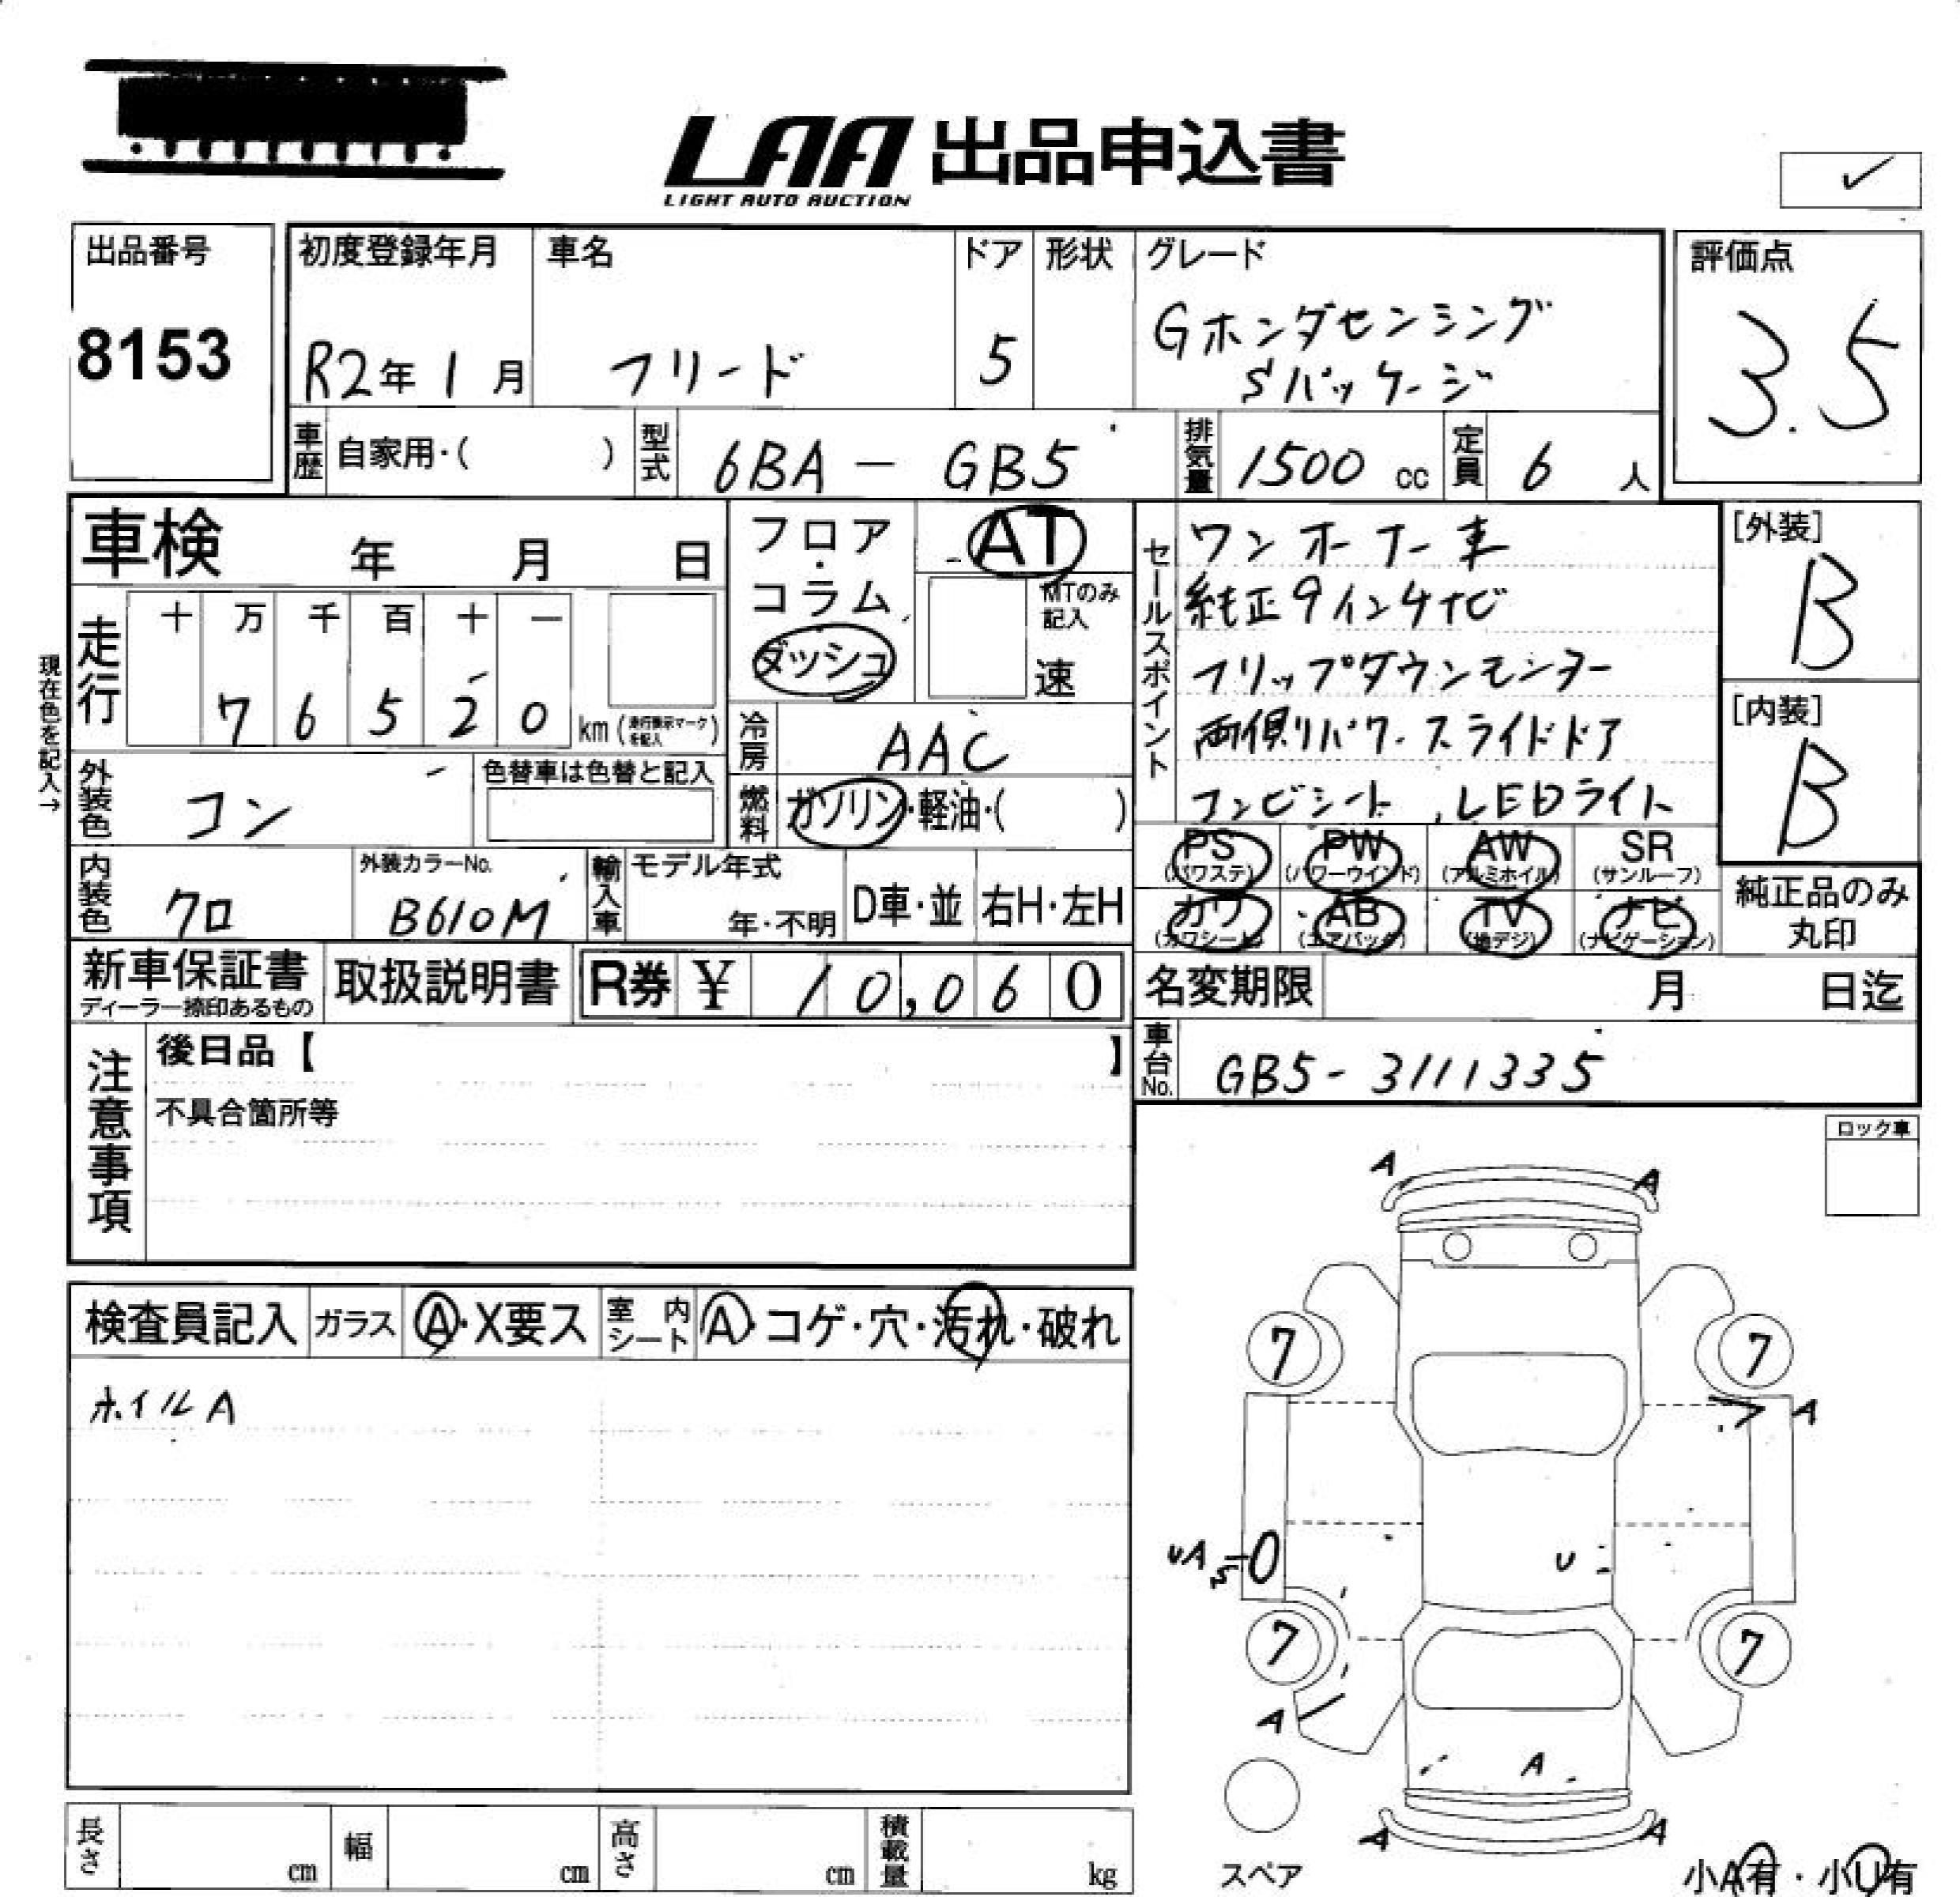 LAA 出品申込書
LIGHT AUTO AUCTION
✓
出品番号
8153
初度登録年月
R2年 1月
車名
フリード
ドア
5
形状
グレード
Gホンダセンシング
Sパッケージ
評価点
3.5
車歴 自家用・( )
型式 6BA - GB5
排気量 1500 cc
定員 6 人
車検 年 月 日
現在色を記入→
走行
十 万 千 百 十 一
7 6 5 2 0 km (走行表示マークを記入)
フロア・
コラム
ダッシュ
AT
MTのみ
記入
速
冷房 AAC
燃料 ガソリン・軽油・( )
外装色 コン
色替車は色替と記入
内装色 クロ
外装カラーNo.
B610M
輸入車 モデル年式
年・不明
D車・並
右H・左H
セールスポイント
ワンオーナー車
純正9インチナビ
フリップダウンモニター
両側パワースライドドア
コンビシート、LEDライト
[外装]
B
[内装]
B
PS (パワステ)
PW (パワーウインド)
AW (アルミホイル)
SR (サンルーフ)
カワ (カワシート)
AB (エアバック)
TV (地デジ)
ナビ (ナビゲーション)
純正品のみ
丸印
新車保証書
ディーラー捺印あるもの
取扱説明書
R券 ¥ 10,060
名変期限 月 日迄
車台No. GB5-3111335
注意事項
後日品【 】
不具合箇所等
ロック車
検査員記入
ガラス A・X要ス
室内シート A・コゲ・穴・汚れ・破れ
ホイルA
A
A
7
7
A
UA
U
7
7
A
A
A
A
スペア
小A有・小U有
長さ cm
幅 cm
高さ cm
積載量 kg